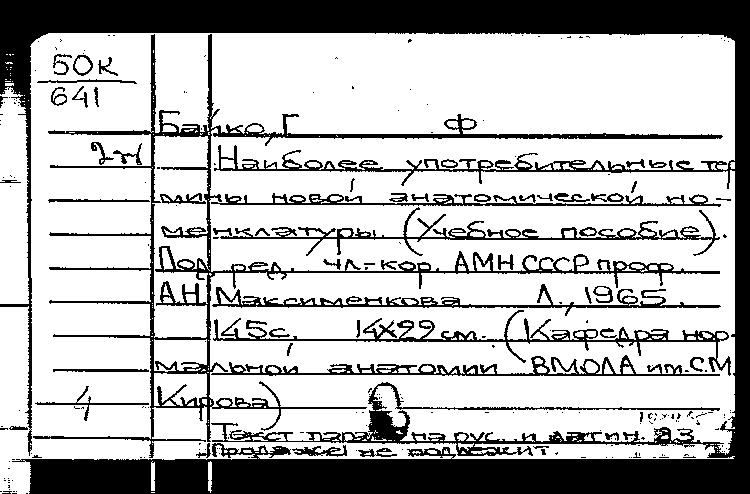 50к
641
Байко, Г Ф
2м Наиболее употребительные тер
мины новой анатомической но-
менклатуры. (Учебное пособие).
Под ред. чл.-кор. АМН СССР проф.
А.Н. Максименкова Л., 1965.
145с. 14х22 см. (Кафедра нор-
мальной анатомии ВМОЛА им. С.М.
4 Кирова)
Текст парал. на рус. и латин. яз.
Продаже не подлежит.